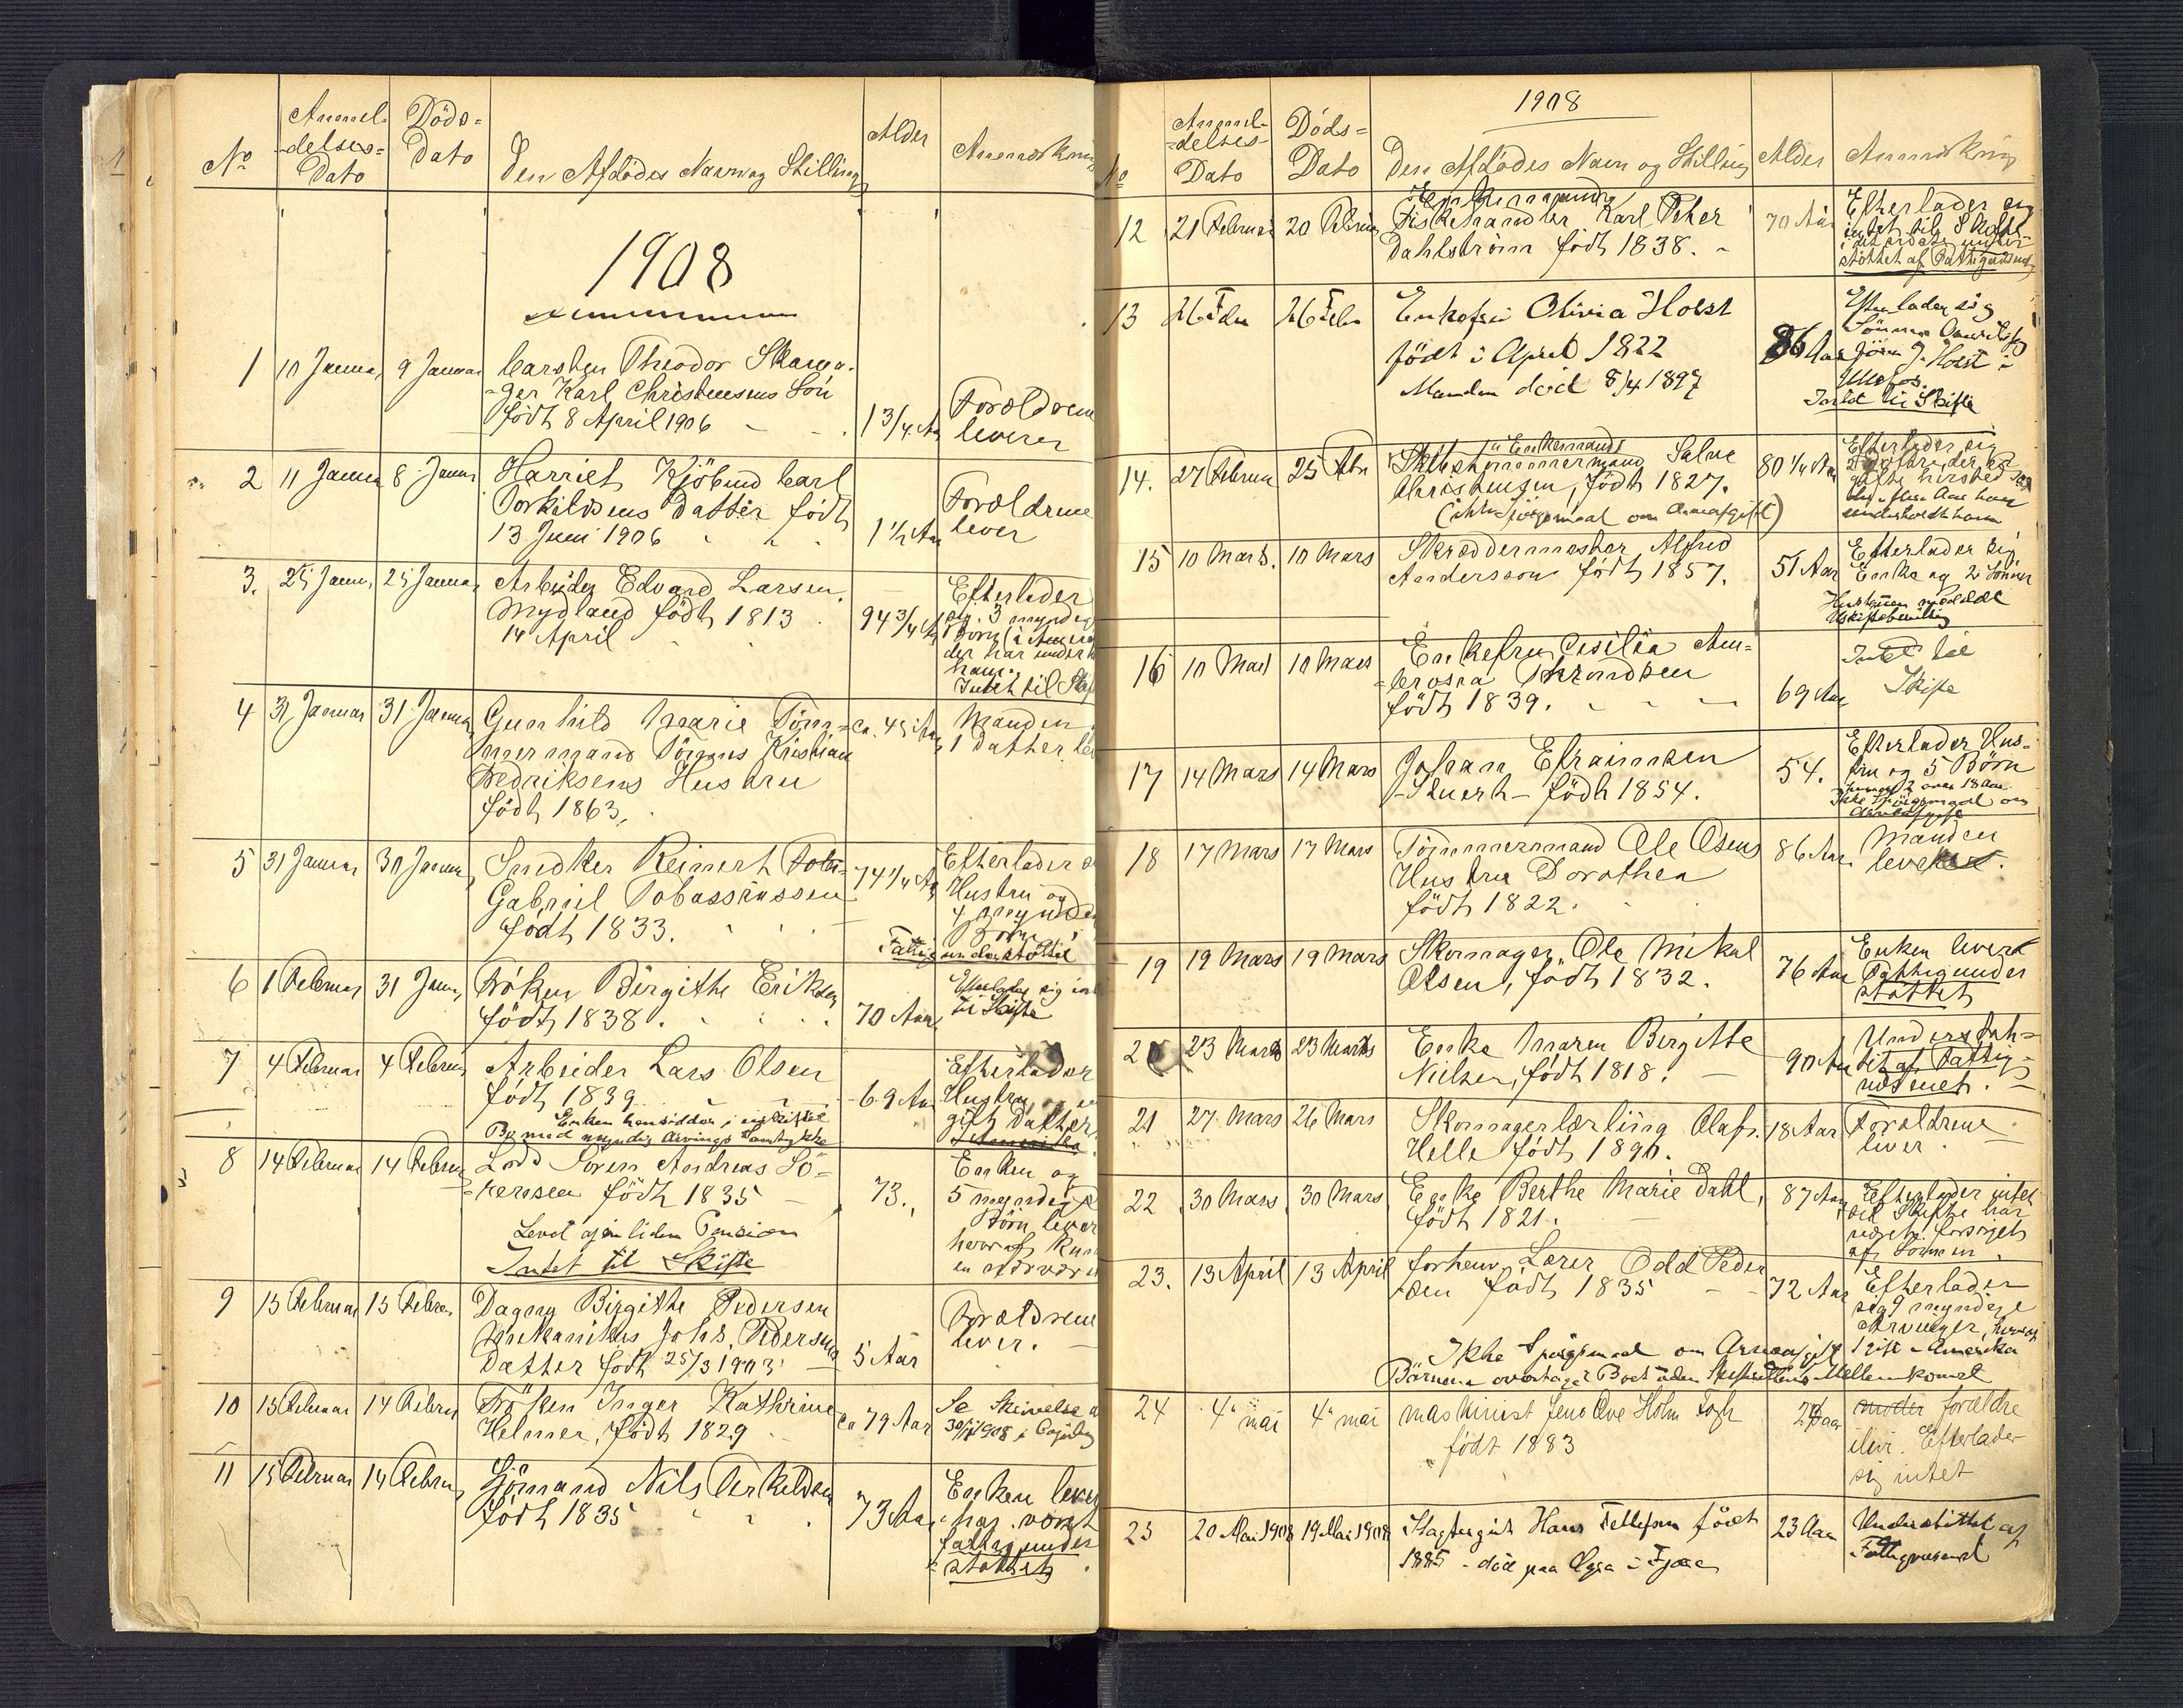 Anmel-
-delses-
Dato
Döds-
Dato
No
Den Afdödes Navn og Stilling
Alder
Anmærkning
1908
1 10 Januar 9 Januar Carsten Theodor Skoma-
-ger Karl Christensens Sön
födt 8 April 1906 1 3/4 Aar
Forældrene
lever
2 11 Januar 8 Januar Harriet Kjöbmd Carl
Torkildsens Datter födt
13 Juni 1906 1 1/2 Aar
Forældrene
lever
3. 25 Januar 25 Januar Arbeider Edvard Larsen
Mydland födt 1813 94 3/4 Aar
14 April
Efterlader
sig 3 myndige
Börn i Amerika
der har underh
ham.
Intet til Skifte
4 31 Januar 31 Januar Gunhild Marie Töm- ca. 45 Aar
mermand Tönnes Kristian
Fredriksens Hustru
födt 1863.
Manden
1 Datter lever
5 31 Januar 30 Januar Snedker Reinert Tobi- 74 1/4 Aar
Gabriel Tobiassen
födt 1833.
Efterlader
Hustru og
4 mynde
Börn
Fattigunderstöttet
6 1 Februar 31 Januar Fröken Birgithe Eriksen
födt 1838. 70 Aar
Efterlader sig intet
til Skifte
7 4 Februar 4 Februar Arbeider Lars Olsen
födt 1839 69 Aar
Enken hensidder i uskiftet
Bo med myndig Arvings Samtykke
Efterlader
Hustru
gift Datter
i Amerika
8 14 Februar 14 Februar Lods Sören Andreas Sö-
-rensen födt 1835 73.
Levet af en liden Pension
Intet til Skifte
Enken og
5 myndige
Börn lever
hvoraf kun
en
9 15 Februar 15 Februar Dagny Birgithe Pedersen
Mekanikus Johs. Pedersens
Datter födt 25/3 1903 5 Aar
Forældrene
lever.
10 15 Februar 14 Februar Fröken Inger Kathrine
Helmer, födt 1829 Ca 79 Aar
Se Skrivelse
1908 i
11 15 Februar 14 Februar Sjömand Nils Terkeldsen
födt 1835 73 Aar
Enken lever
har været
fattigunder
-stöttet
1908
No
Anmel-
-delses-
Dato
Döds-
Dato
Den Afdödes Navn og Stilling
Alder
Anmærkning
Enkemand
12 21 Februar 20 Februar Fiskehandler Karl Peter 70 Aar
Dahlström födt 1838.
Efterlader sig
intet til Skifte
i det sidste under-
stöttet af Fattigvæsenet
13 26 Febr 26 Febr Enkefru Olivia Holst
födt i April 1822 86 Aar
Manden död 8/4 1897
Efterlader sig
Sönnen
Jörn J. Holst i
Intet til Skifte
14. 27 Februar 25 Febr Skibstömmermand Enkemand Salve 80 1/4 Aar
Christensen, födt 1827.
(ikke spörgsmaal om Arveafgift)
Efterlader sig
15 10 Mars. 10 Mars Skreddermester Alfred
Andersson födt 1857. 51 Aar
Efterlader sig
Enke og 2 Sönner
Hustruen meddelt
Uskiftebevilling
16 10 Mars 10 Mars Enkefru Cesilia Am-
-brosia Throndsen
födt 1839. 69 Aar
Intet til
Skifte
17 14 Mars 14 Mars Johan Efraimsen
-Stuert- födt 1854. 54.
Efterlader Hus-
tru og 5 Börn
2 over 18 Aar
Ikke Spörgsmaal om
Arveafgift
18 17 Mars 17 Mars Tömmermand Ole Olsens 86 Aar
Hustru Dorothea
födt 1822.
Manden
lever.
19 19 Mars 19 Mars Skomager Ole Mikal
Olsen, födt 1832. 76 Aar
Enken lever
Fattigunder
stöttet
20 23 Mars 23 Mars Enke Maren Birgitte
Nielsen, födt 1818. 90 Aar
Understöt-
tet af Fattig-
væsenet.
21 27 Mars 26 Mars Skomagerlærling Olaf 18 Aar
Helle födt 1890.
Forældrene
lever
22 30 Mars 30 Mars Enke Berthe Marie Dahl, 87 Aar
födt 1821.
Efterlader intet
til Skifte har
været forsörget
af Sönnen.
23. 13 April 13 April forhenv. Lærer Odd Peder
sen födt 1835 72 Aar
Efterlader
sig 9 myndige
Arvinger, hvoraf
1 gift i Amerika
Ikke Spörgsmaal om Arveafgift
Börnene overtager Boet uden Skifterettens Mellemkomst
24 4 mai 4 mai maskinist Jens Ove Holm 24 aar
födt 1883
moder forældre
ilive. Efterlader
sig intet
25 20 Mai 1908 19 Mai 1908 Slagtergut Hans Tellefsen födt 23 Aar
1885 - död paa i
Understöttet af
Fattigvæsenet